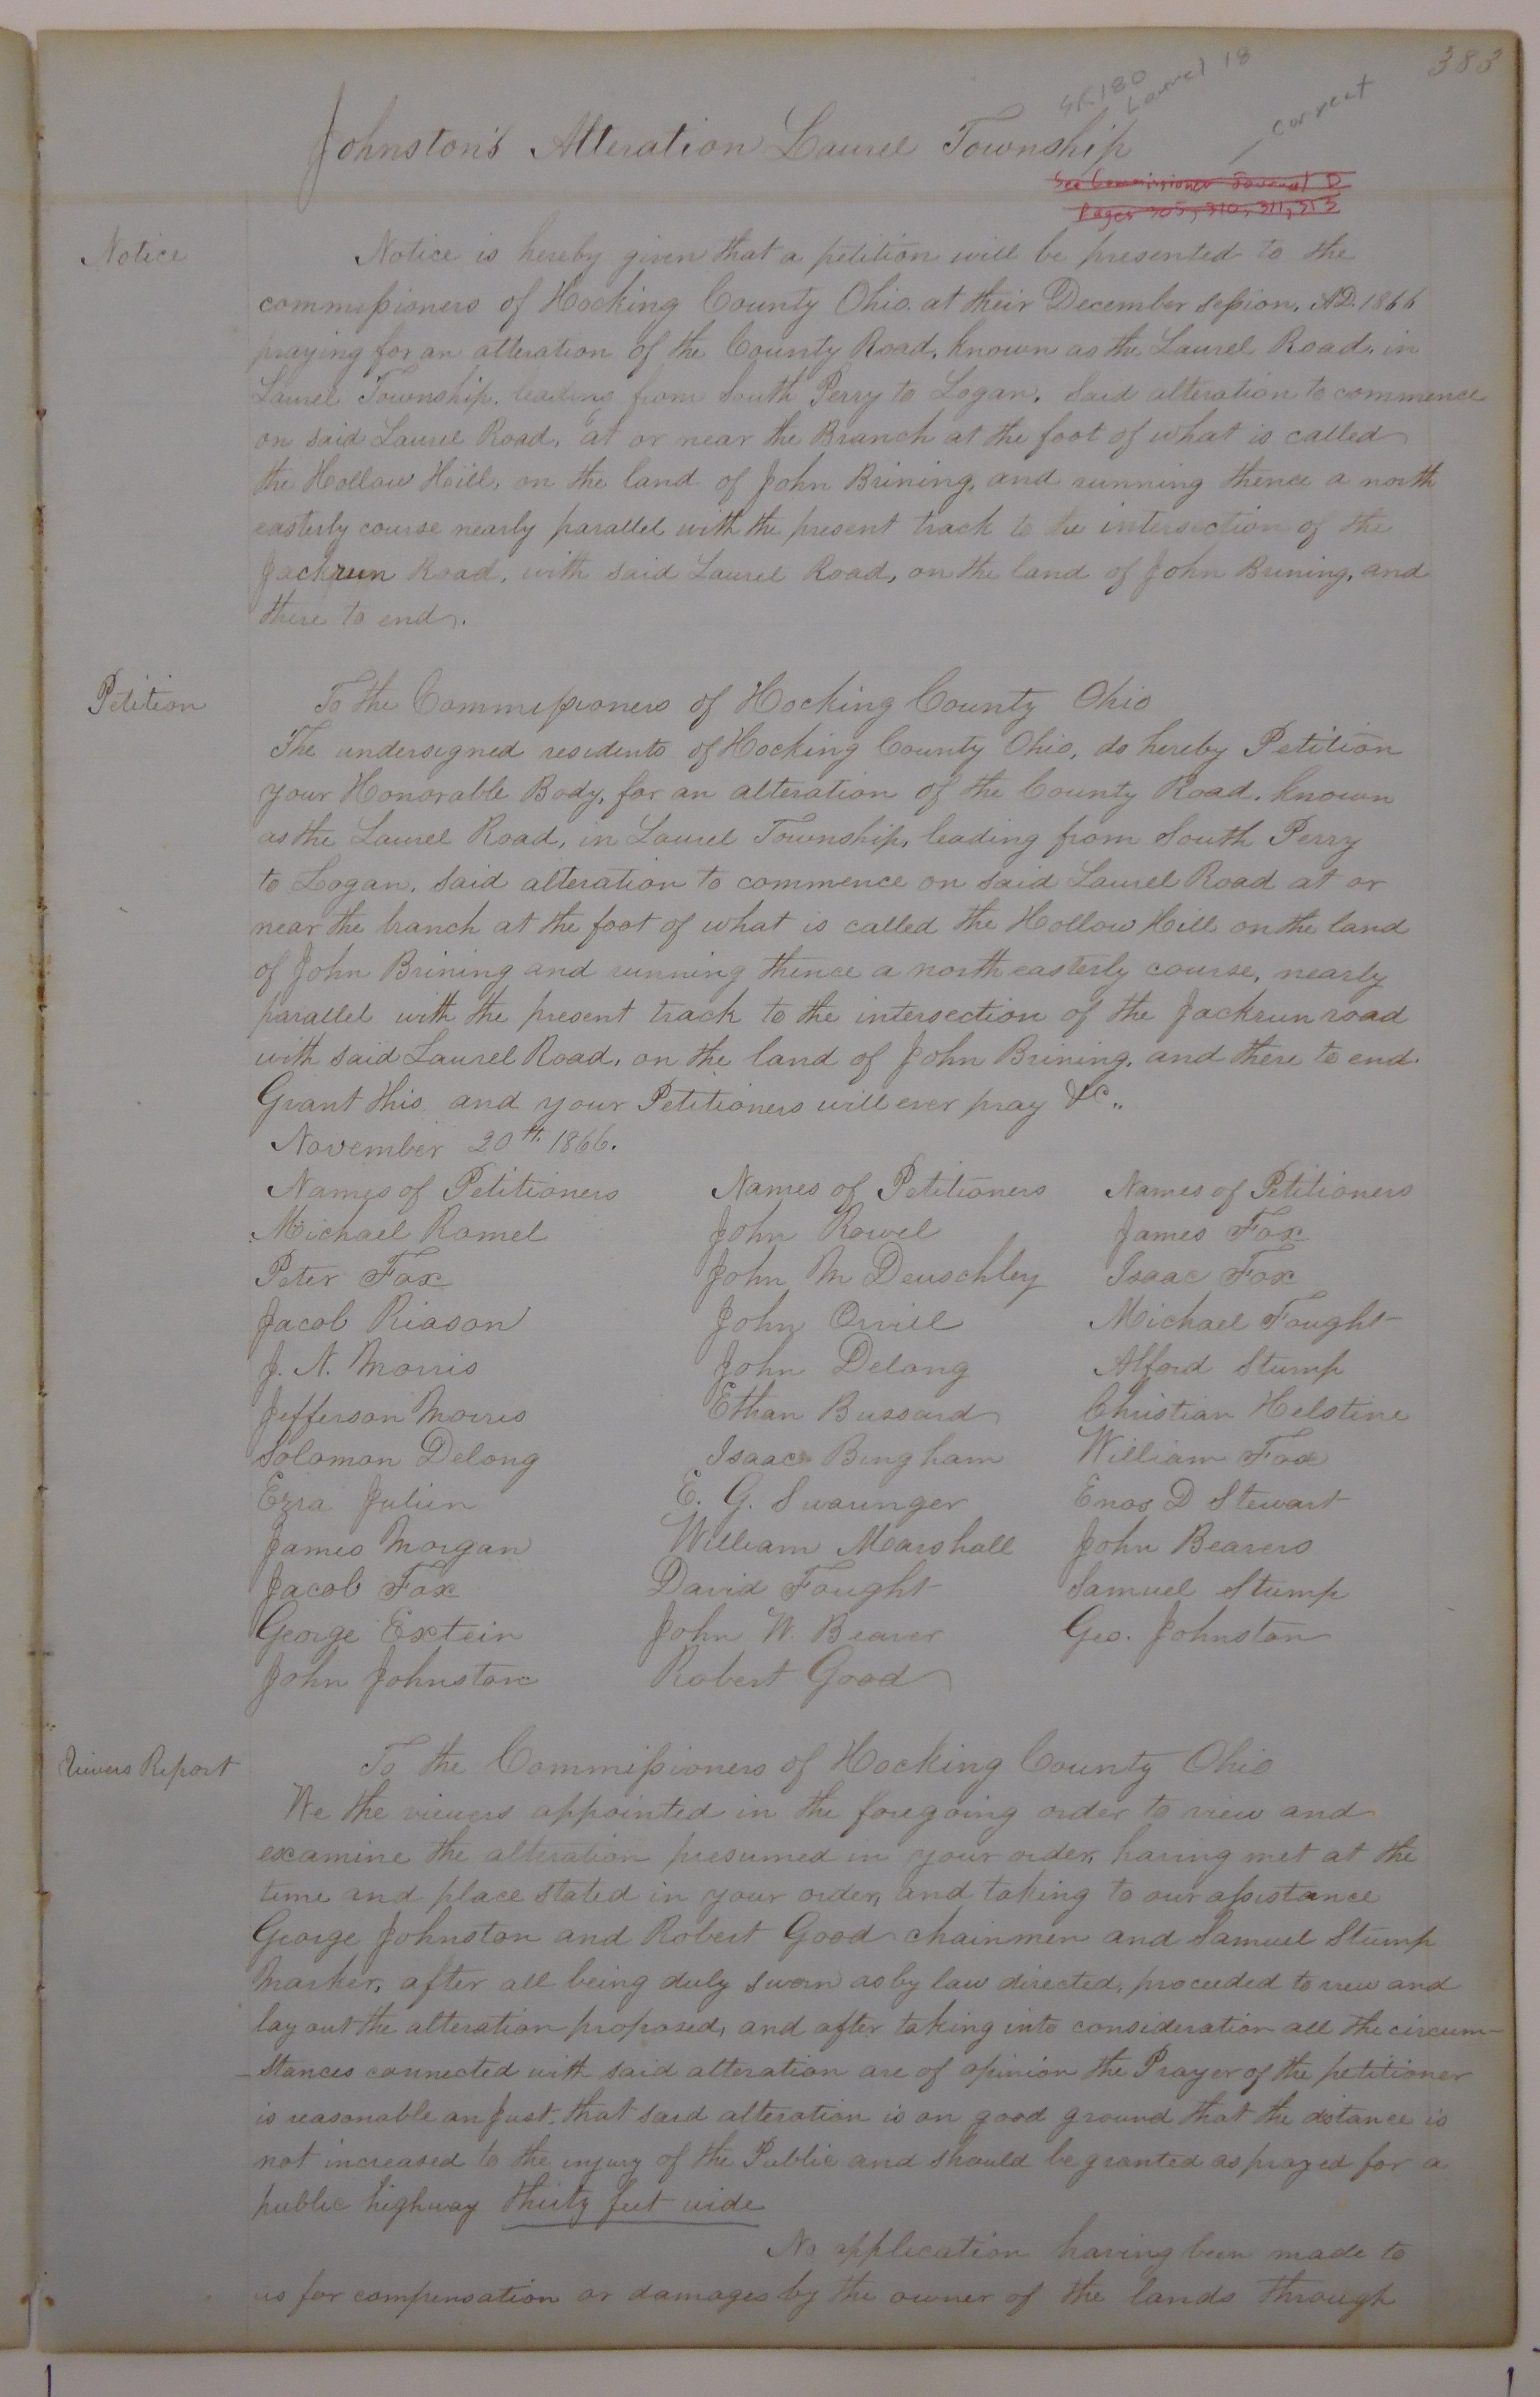 383
SK180
Laurel 18
correct
Johnston's Alteration Laurel Township
See Commissioner Journal D
Pages 305, 310, 311, 313
Notice
Notice is hereby given that a petition will be presented to the
commissioners of Hocking County Ohio. at their December session, AD. 1866
praying for an alteration of the County Road, known as the Laurel Road, in
Laurel Township. leading from South Perry to Logan, Said alteration to commence
on said Laurel Road, at or near the Branch at the foot of what is called
the Hollow Hill, on the land of John Brining, and running thence a north
easterly course nearly parallel with the present track to the intersection of the
Jackrun Road, with said Laurel Road, on the land of John Brining, and
there to end.
Petition
To the Commissioners of Hocking County Ohio
The undersigned residents of Hocking County Ohio, do hereby Petition
your Honorable Body, for an alteration of the County Road. known
as the Laurel Road, in Laurel Township, leading from South Perry
to Logan, said alteration to commence on said Laurel Road at or
near the branch at the foot of what is called the Hollow Hill on the land
of John Brining and running thence a north easterly course, nearly
parallel with the present track to the intersection of the Jackrun road
with said Laurel Road, on the land of John Brining, and there to end.
Grant this and your Petitioners will ever pray &c.,
November 20th 1866.
Names of Petitioners Names of Petitioners Names of Petitioners
Michael Ramel John Rowel James Fox
Peter Fox John M Deuschley Isaac Fox
Jacob Riason John Orrill Michael Fought
J. N. Morris John Delong Alford Stump
Jefferson Morris Ethan Bussard Christian Helstine
Solomon Delong Isaac Bingham William Fox
Ezra Julien E. G. Swaunger Enos D Stewart
James Morgan William Marshall John Beavers
Jacob Fox David Fought Samuel Stump
George Extein John W. Beaver Geo. Johnston
John Johnston Robert Good
Viewers Report
To the Commissioners of Hocking County Ohio
We the viewers appointed in the foregoing order to view and
examine the alteration presumed in your order, having met at the
time and place stated in your order, and taking to our assistance
George Johnston and Robert Good chainmen and Samuel Stump
Marker, after all being duly sworn as by law directed, proceeded to view and
lay out the alteration proposed, and after taking into consideration all the circum-
-stances connected with said alteration are of opinion the Prayer of the petitioner
is reasonable an Just. that said alteration is on good ground that the distance is
not increased to the injury of the Public and should be granted as prayed for a
public highway thirty feet wide
No application having been made to
us for compensation or damages by the owner of the lands through